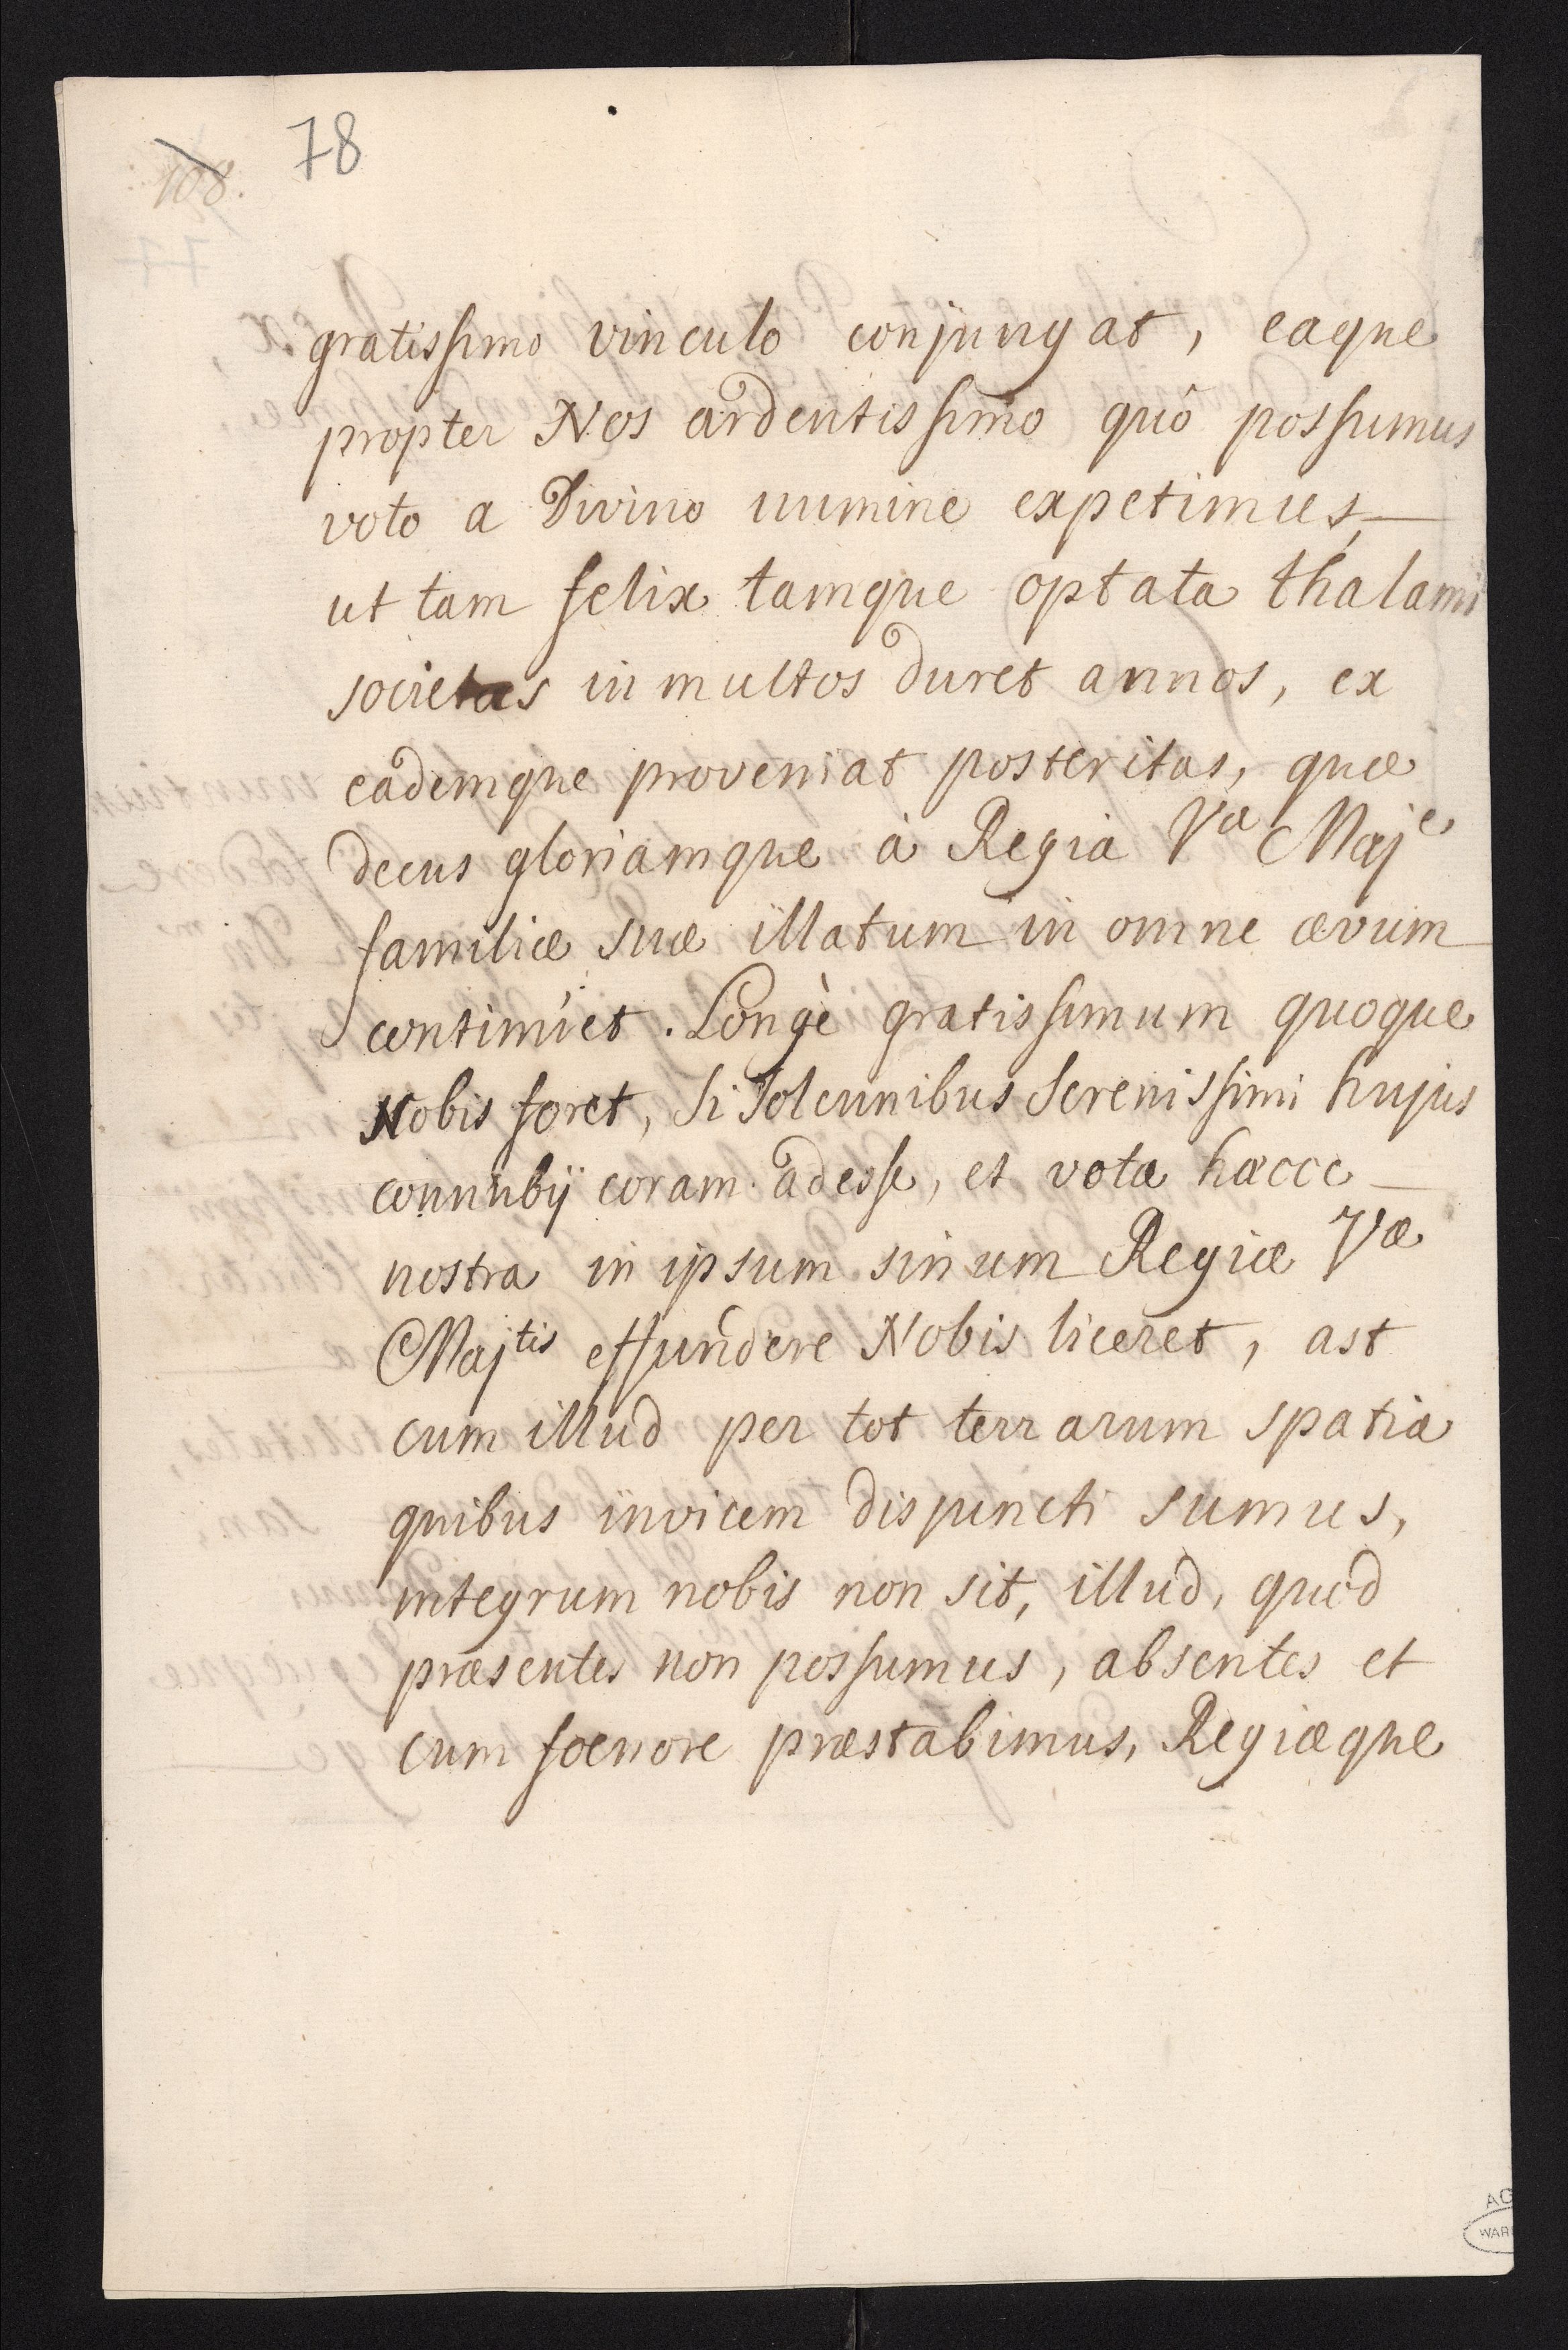 108.
78
gratissimo vinculo conjungat, eaque
propter Nos ardentissimo quô possumus
voto a Divino numine expetimus,
ut tam felix tamque optata thalami
societas in multos duret annos, ex
eademque proveniat posteritas, quæ
decus gloriamque à Regia Vᵃ Majᵉ
familiæ suæ illatum in omne ævum
continuet. Longè gratissimum quoque
Nobis foret, si solennibus Serenissimi hujus
connubij coram adesse, et vota hæcce
nostra in ipsum sinum Regiæ Væ
Majtis effundere Nobis liceret, ast
cum illud per tot terrarum spatia
quibus invicem disjuncti sumus,
integrum nobis non sit, illud, quod
præsentes non possumus, absentes et
cum foenore præstabimus, Regiæque